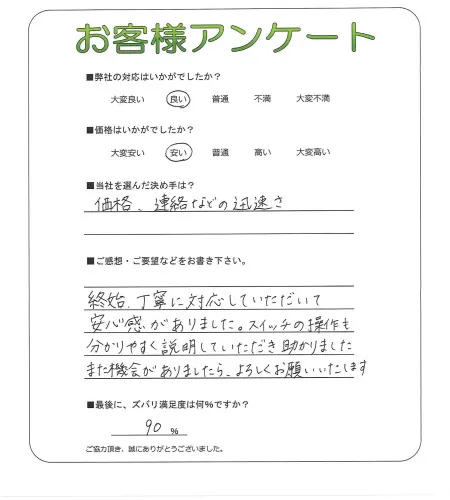 お客様アンケート
■弊社の対応はいかがでしたか？
大変良い 良い 普通 不満 大変不満
■価格はいかがでしたか？
大変安い 安い 普通 高い 大変高い
■当社を選んだ決め手は？
価格、連絡などの迅速さ
■ご感想・ご要望などをお書き下さい。
終始、丁寧に対応していただいて
安心感がありました。スイッチの操作も
分かりやすく説明していただき助かりました
また機会がありましたら、よろしくお願いいたします
■最後に、ズバリ満足度は何%ですか？
90 %
ご協力頂き、誠にありがとうございました。